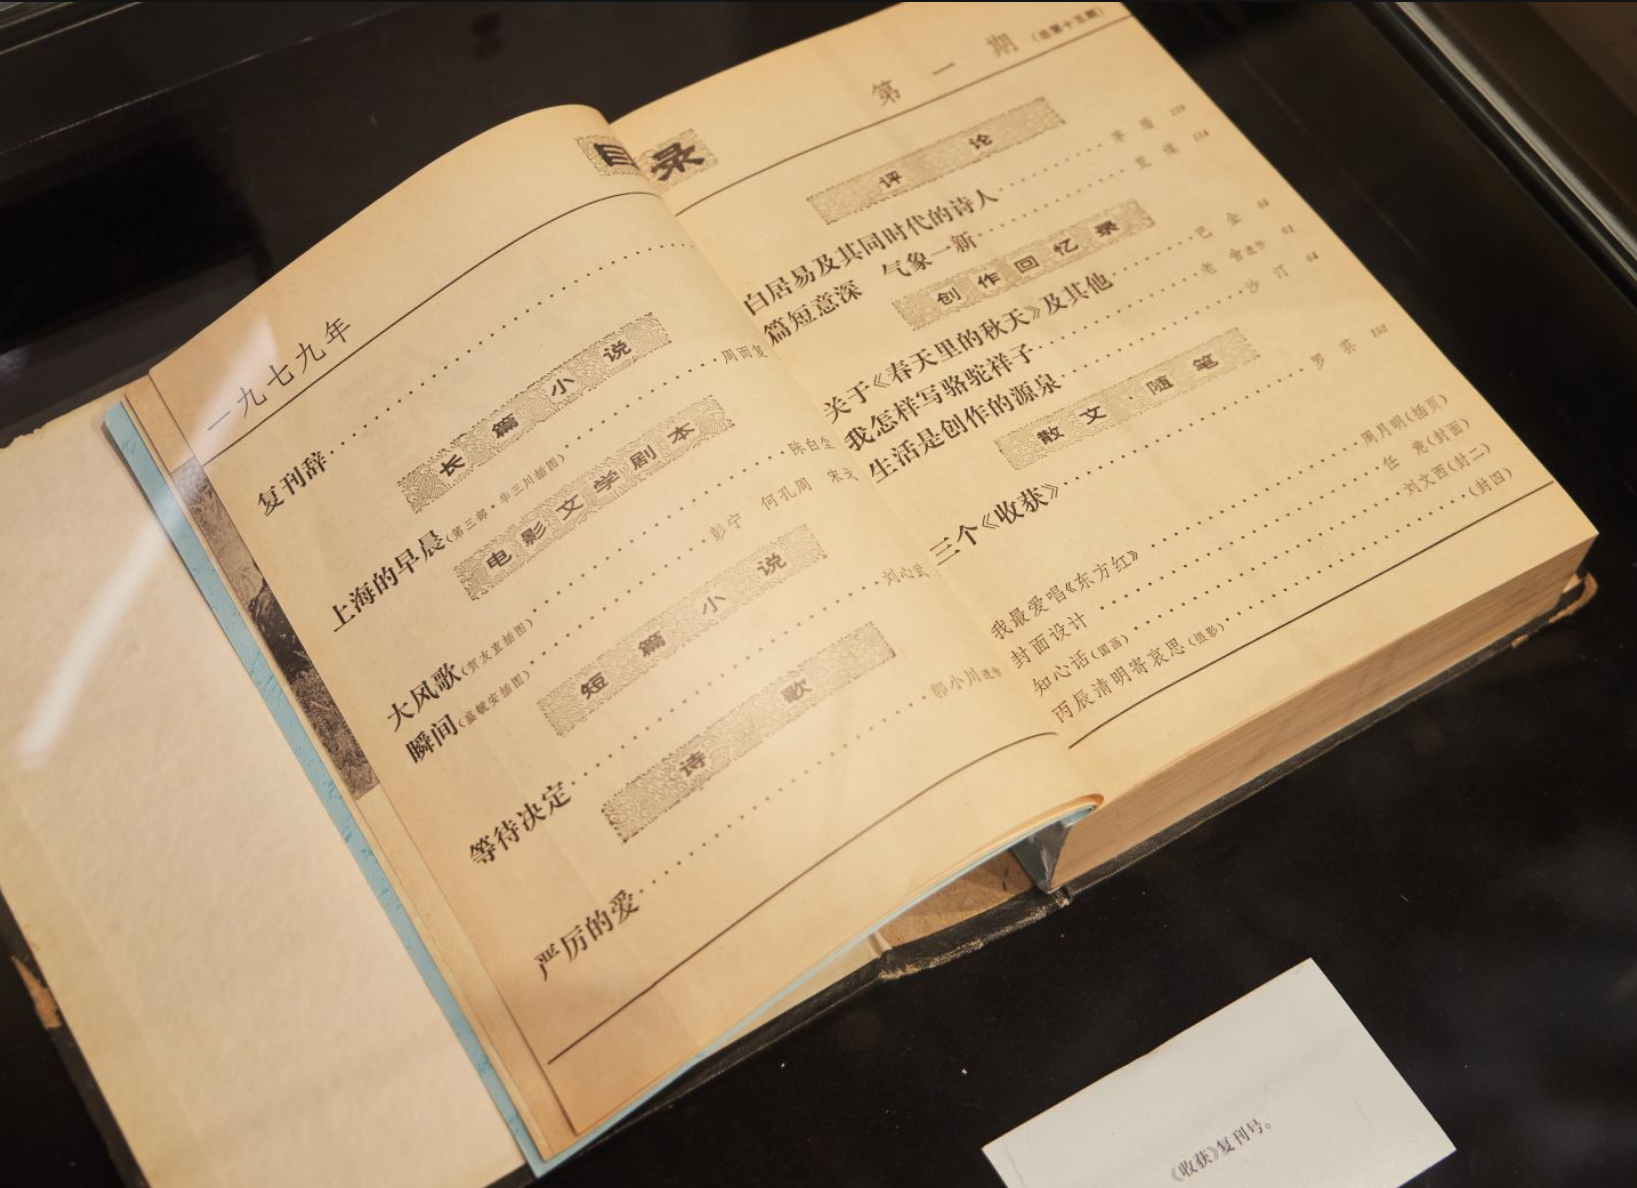 目录
一九七九年
第一期（总第十五期）
复刊辞
长篇小说
上海的早晨（第三部·华三川插图） 周而复
电影文学剧本
大风歌（贺友直插图） 陈白尘
瞬间（盛毓安插图） 彭宁 何孔周 宋戈
短篇小说
等待决定 刘心武
诗歌
严厉的爱 郭小川遗作
评论
白居易及其同时代的诗人 茅盾
篇短意深 气象一新
创作回忆录
关于《春天里的秋天》及其他 巴金
我怎样写骆驼祥子 老舍遗作
生活是创作的源泉 沙汀
散文·随笔
三个《收获》 罗荪
我最爱唱《东方红》 周月明（插页）
封面设计 任意（封面）
知心话（国画） 刘文西（封二）
丙辰清明寄哀思（摄影） （封四）
《收获》复刊号。